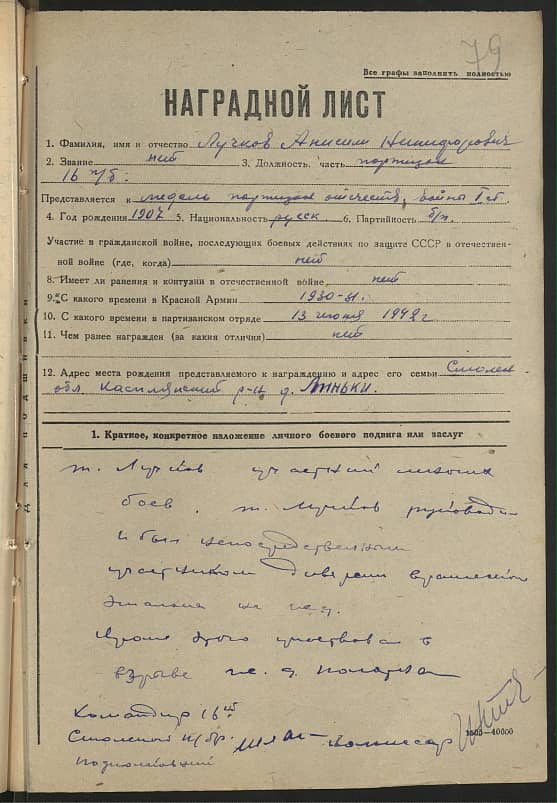 79
Все графы заполнить полностью
НАГРАДНОЙ ЛИСТ
1. Фамилия, имя и отчество Лучков Анисим Никифорович
2. Звание нет 3. Должность, часть партизан
16 п/б.
Представляется к медаль партизан отечеств, войны II ст.
4. Год рождения 1907 5. Национальность русск. 6. Партийность б/п.
Участие в гражданской войне, последующих боевых действиях по защите СССР в отечествен-
ной войне (где, когда) нет
8. Имеет ли ранения и контузии в отечественной войне нет
9. С какого времени в Красной Армии 1930-31.
10. С какого времени в партизанском отряде 13 июня 1942 г
11. Чем ранее награжден (за какия отличия) нет
12. Адрес места рождения представляемого к награждению и адрес его семьи Смолен
обл. Касплянский р-н д. Линьки.
1. Краткое, конкретное изложение личного боевого подвига или заслуг
т. Лучков участник многих
боев. т. Лучков руководил
и был непосредственным
участником диверсии вражеского
эшелона на ж.д.
Кроме этого участвовал в
взрыве ж. д. полотна
Командир 16ой
Смоленской п/бр. комиссар
подполковник
1000—40000
для подшивки